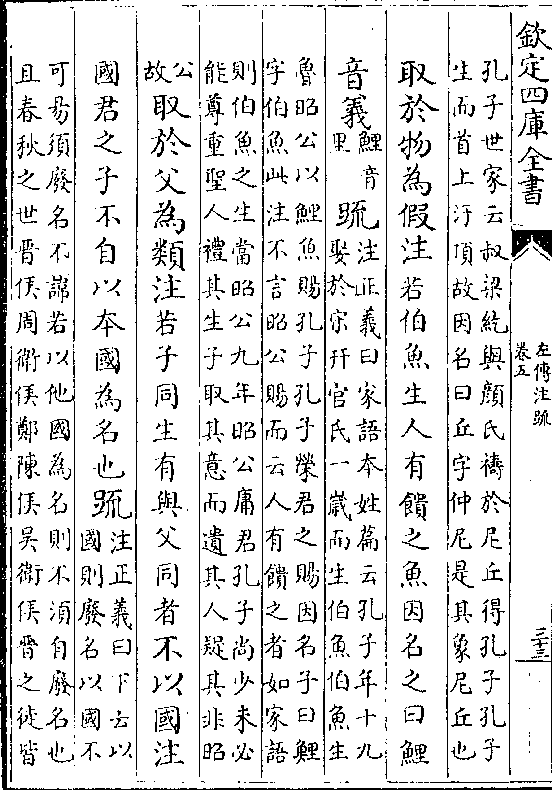 欽定四庫全書
左傳注疏
卷五
三十三
孔子世家云叔梁紇與顔氏禱於尼丘得孔子孔子
生而首上汙頂故因名曰丘字仲尼是其象尼丘也
取於物為假注若伯魚生人有饋之魚因名之曰鯉
音義鯉音
里 疏注正義曰家語本姓篇云孔子年十九
娶於宋幵官氏一歳而生伯魚伯魚生
魯昭公以鯉魚賜孔子孔子榮君之賜因名子曰鯉
字伯魚此注不言昭公賜而云人有饋之者如家語
則伯魚之生當昭公九年昭公庸君孔子尚少未必
能尊重聖人禮其生子取其意而遺其人疑其非昭
公
故取於父為類注若子同生有與父同者不以國注
國君之子不自以本國為名也疏注正義曰下云以
國則廢名以國不
可易須廢名不諱若以他國為名則不須自廢名也
且春秋之世晉侯周衛侯鄭陳侯吳衛侯晉之徒皆